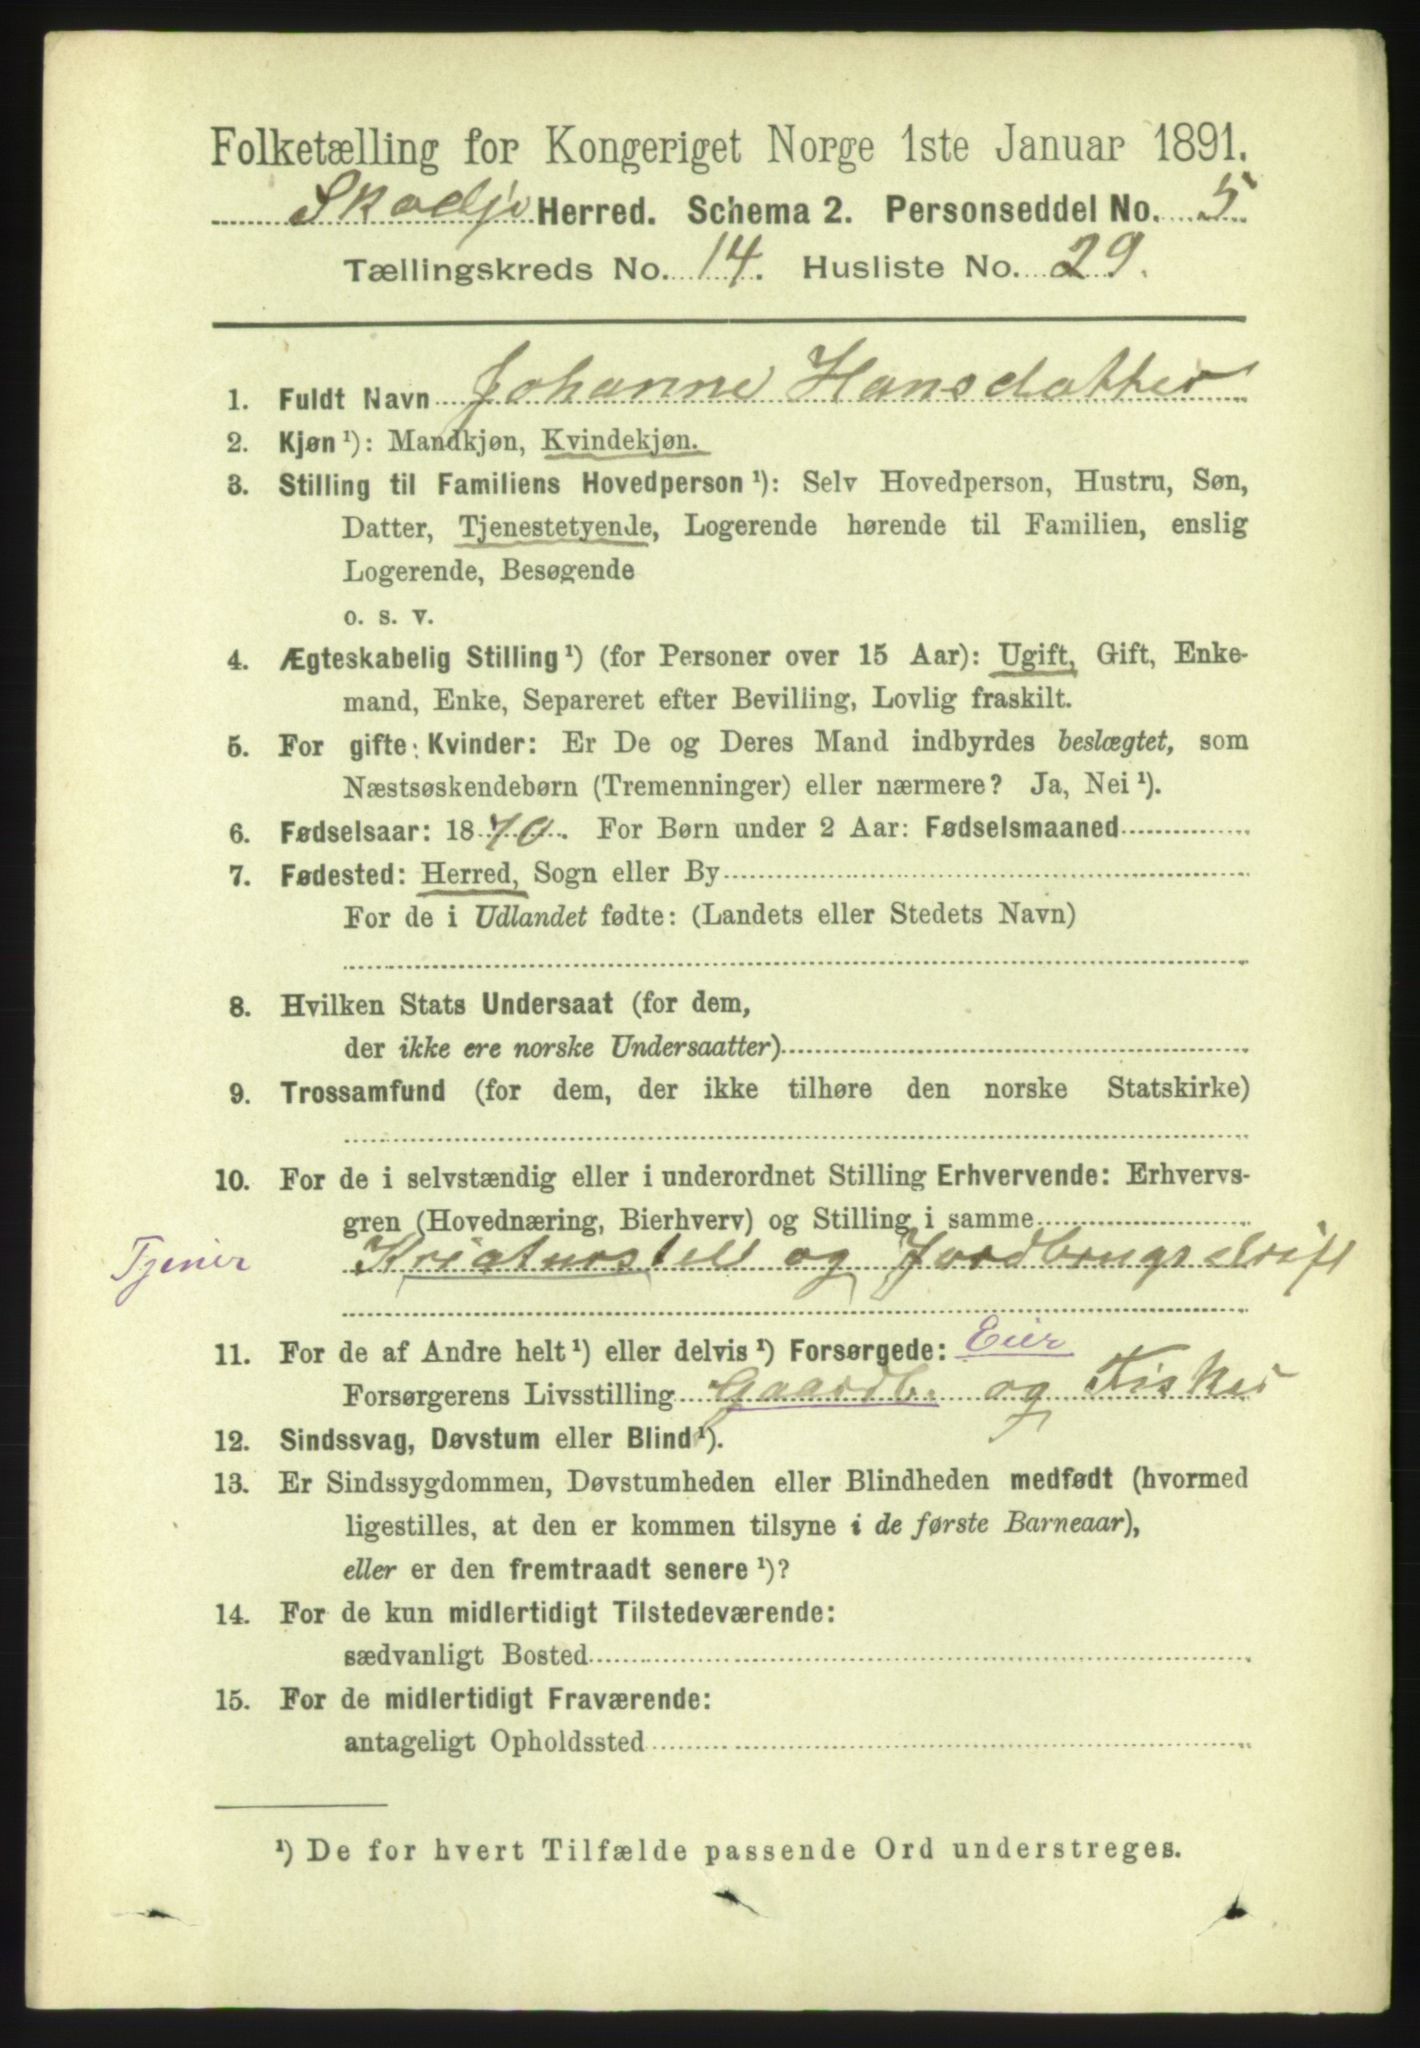 Folketælling for Kongeriget Norge 1ste Januar 1891.
Skodje Herred. Schema 2. Personseddel No. 5
Tællingskreds No. 14. Husliste No. 29.
1. Fuldt Navn Johanne Hansdatter
2. Kjøn ¹): Mandkjøn, Kvindekjøn.
3. Stilling til Familiens Hovedperson ¹): Selv Hovedperson, Hustru, Søn,
Datter, Tjenestetyende, Logerende hørende til Familien, enslig
Logerende, Besøgende
o. s. v.
4. Ægteskabelig Stilling ¹) (for Personer over 15 Aar): Ugift, Gift, Enke-
mand, Enke, Separeret efter Bevilling, Lovlig fraskilt.
5. For gifte Kvinder: Er De og Deres Mand indbyrdes beslægtet, som
Næstsøskendebørn (Tremenninger) eller nærmere? Ja, Nei ¹).
6. Fødselsaar: 1870. For Børn under 2 Aar: Fødselsmaaned
7. Fødested: Herred, Sogn eller By
For de i Udlandet fødte: (Landets eller Stedets Navn)
8. Hvilken Stats Undersaat (for dem,
der ikke ere norske Undersaatter)
9. Trossamfund (for dem, der ikke tilhøre den norske Statskirke)
10. For de i selvstændig eller i underordnet Stilling Erhvervende: Erhvervs-
gren (Hovednæring, Bierhverv) og Stilling i samme
Tjener Kriaturstell og Jordbrugsdrift
11. For de af Andre helt ¹) eller delvis ¹) Forsørgede: Eier
Forsørgerens Livsstilling Gaardb. og Fisker
12. Sindssvag, Døvstum eller Blind ¹).
13. Er Sindssygdommen, Døvstumheden eller Blindheden medfødt (hvormed
ligestilles, at den er kommen tilsyne i de første Barneaar),
eller er den fremtraadt senere ¹)?
14. For de kun midlertidigt Tilstedeværende:
sædvanligt Bosted
15. For de midlertidigt Fraværende:
antageligt Opholdssted
¹) De for hvert Tilfælde passende Ord understreges.